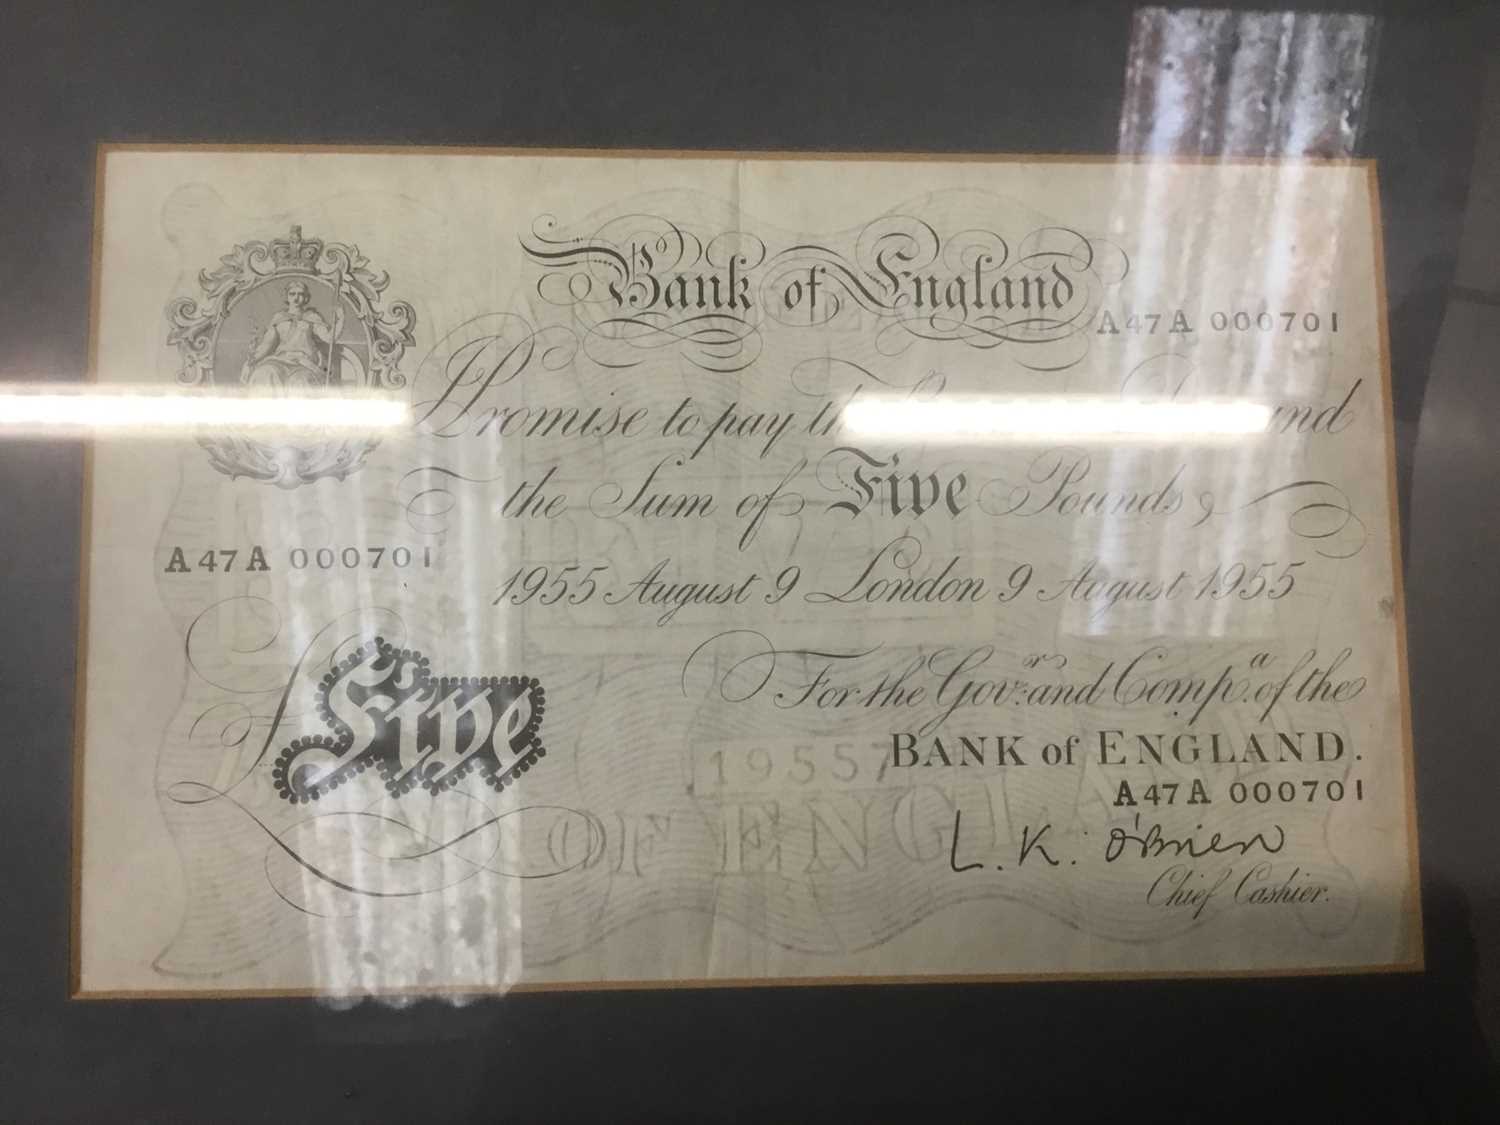 Bank of England
A47A 000701
Promise to pay
the Sum of Five Pounds
A47A 000701
1955 August 9 London 9 August 1955
Five
For the Gov.r and Comp.a of the
19557
BANK of ENGLAND.
A47A 000701
OF ENGLA
L. K. O'Brien
Chief Cashier.